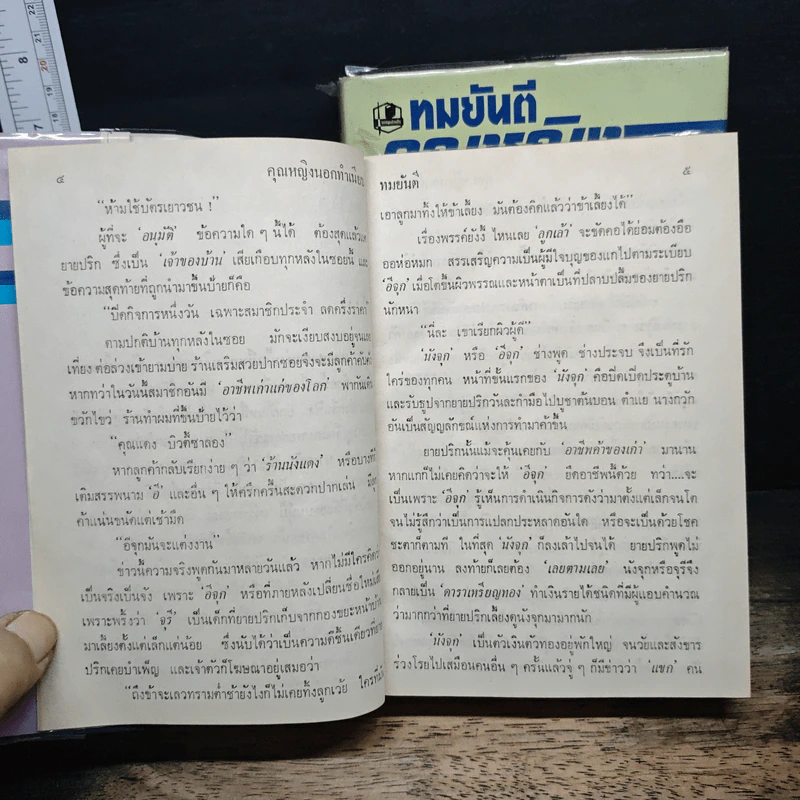 8
22
21
20
19
7
18
ทมยันตี
๔
คุณหญิงนอกทำเนียบ
“ห้ามใช้บัตรเยาวชน !”
ผู้ที่จะ ‘อนุมัติ’ ข้อความใด ๆ นี้ได้ ต้องสุดแล้วแต่
ยายปริก ซึ่งเป็น ‘เจ้าของบ้าน’ เสียเกือบทุกหลังในซอยนี้ และ
ข้อความสุดท้ายที่ถูกนำมาขึ้นป้ายก็คือ
“ปิดกิจการหนึ่งวัน เฉพาะสมาชิกประจำ ลดครึ่งราคา”
ตามปกติบ้านทุกหลังในซอย มักจะเงียบสงบอยู่จนเลย
เที่ยง ต่อล่วงเข้ายามบ่าย ร้านเสริมสวยปากซอยจึงจะมีลูกค้าคับคั่ง
หากทว่าในวันนี้สมาชิกอันมี ‘อาชีพเก่าแก่ของโลก’ พากันเดิน
ขวักไขว่ ร้านทำผมที่ขึ้นป้ายไว้ว่า
“คุณแดง บิวตี้ซาลอง”
หากลูกค้ากลับเรียกง่าย ๆ ว่า ‘ร้านนังแดง’ หรือบางทีก็
เติมสรรพนาม ‘อี’ และอื่น ๆ ให้ครึกครื้นสะดวกปากเล่น มีลูก
ค้าแน่นขนัดแต่เช้ามืด
“อีจุกมันจะแต่งงาน”
ข่าวนี้ความจริงพูดกันมาหลายวันแล้ว หากไม่มีใครคิดว่า
เป็นจริงเป็นจัง เพราะ ‘อีจุก’ หรือที่ภายหลังเปลี่ยนชื่อใหม่
เพราะพริ้งว่า ‘จุรี’ เป็นเด็กที่ยายปริกเก็บจากกองขยะหน้าบ้าน
มาเลี้ยงตั้งแต่เล็กแต่น้อย ซึ่งนับได้ว่าเป็นความดีชิ้นเดียวที่ยาย
ปริกเคยบำเพ็ญ และเจ้าตัวก็โฆษณาอยู่เสมอว่า
“ถึงข้าจะเลวทรามต่ำช้ายังไงก็ไม่เคยทิ้งลูกเว้ย ใครที่มัน
ทมยันตี
๕
เอาลูกมาทิ้งให้ข้าเลี้ยง มันต้องคิดแล้วว่าข้าเลี้ยงได้”
เรื่องพรรค์ยังงี้ ไหนเลย ‘ลูกเล้า’ จะขัดคอได้ย่อมต้องอือ
ออห่อหมก สรรเสริญความเป็นผู้มีใจบุญของแกไปตามระเบียบ
‘อีจุก’ เมื่อโตขึ้นผิวพรรณและหน้าตาเป็นที่ปลาบปลื้มของยายปริก
นักหนา
“นี่ละ เขาเรียกผิวผู้ดี”
‘นังจุก’ หรือ ‘อีจุก’ ช่างพูด ช่างประจบ จึงเป็นที่รัก
ใคร่ของทุกคน หน้าที่ขั้นแรกของ ‘นังจุก’ คือปิดเปิดประตูบ้าน
และรับธูปจากยายปริกวันละกำมือไปบูชาต้นบอน ตำแย นางกวัก
อันเป็นสัญญลักษณ์แห่งการทำมาค้าขึ้น
ยายปริกนั้นแม้จะคุ้นเคยกับ ‘อาชีพค้าของเก่า’ มานาน
หากแกก็ไม่เคยคิดว่าจะให้ ‘อีจุก’ ยึดอาชีพนี้ด้วย ทว่า....จะ
เป็นเพราะ ‘อีจุก’ รู้เห็นการดำเนินกิจการดังว่ามาตั้งแต่เล็กจนโต
จนไม่รู้สึกว่าเป็นการแปลกประหลาดอันใด หรือจะเป็นด้วยโชค
ชะตาก็ตามที ในที่สุด ‘นังจุก’ ก็ลงเล้าไปจนได้ ยายปริกพูดไม่
ออกอยู่นาน ลงท้ายก็เลยต้อง ‘เลยตามเลย’ นังจุกหรือจุรีจึง
กลายเป็น ‘ดาราเหรียญทอง’ ทำเงินรายได้ชนิดที่มีผู้แอบคำนวณ
ว่ามากกว่าที่ยายปริกเลี้ยงดูนังจุกมามากนัก
‘นังจุก’ เป็นตัวเงินตัวทองอยู่พักใหญ่ จนวัยและสังขาร
ร่วงโรยไปเสมือนคนอื่น ๆ ครั้นแล้วจู่ ๆ ก็มีข่าวว่า ‘แขก’ คน